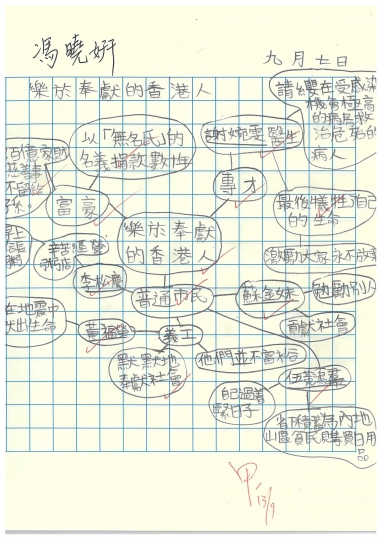 馮曉妍
九月七日
樂於奉獻的香港人
以「無名氏」的
名義捐款數十年
謝婉雯醫生
請纓在受感染
機會極高
的病房救
治危殆的
病人
百億家財
慈善事
不留給
子孫。
富豪
專才
最後犧牲自己
的生命
樂於奉獻
的香港人
激勵大家永不放棄
辛苦經營
粥店
李松慶
普通市民
蘇金妹
勉勵別人
貢獻社會
在地震中
出生命
黃福榮
義工
默默地
奉獻社會
他們並不富裕
自己過着
緊日子
省下積蓄為內地
山區貧民購買日用
品
甲
13/9